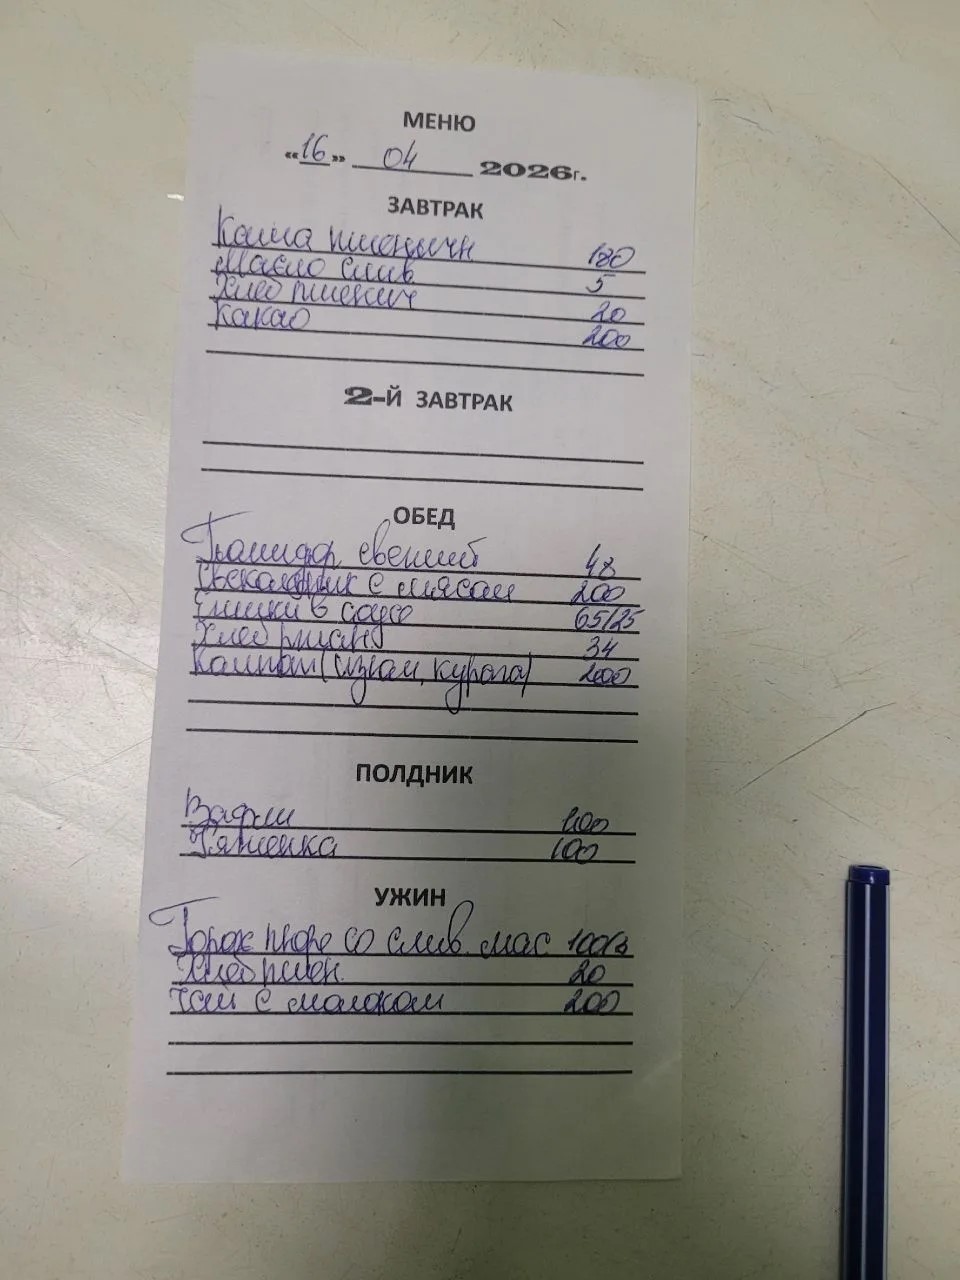 МЕНЮ
«16» 04 2026г.
ЗАВТРАК
Каша пшеничн 180
Масло слив 5
Хлеб пшенич 20
Какао 200
2-Й ЗАВТРАК
ОБЕД
Помидор свежий 48
Свекольник с мясом 200
в соусе 65/25
Хлеб ржан 34
Компот (изюм, курага) 200
ПОЛДНИК
Вафли
Ряженка 100
УЖИН
Горох пюре со слив. мас
Хлеб пшен. 20
Чай с молоком 200